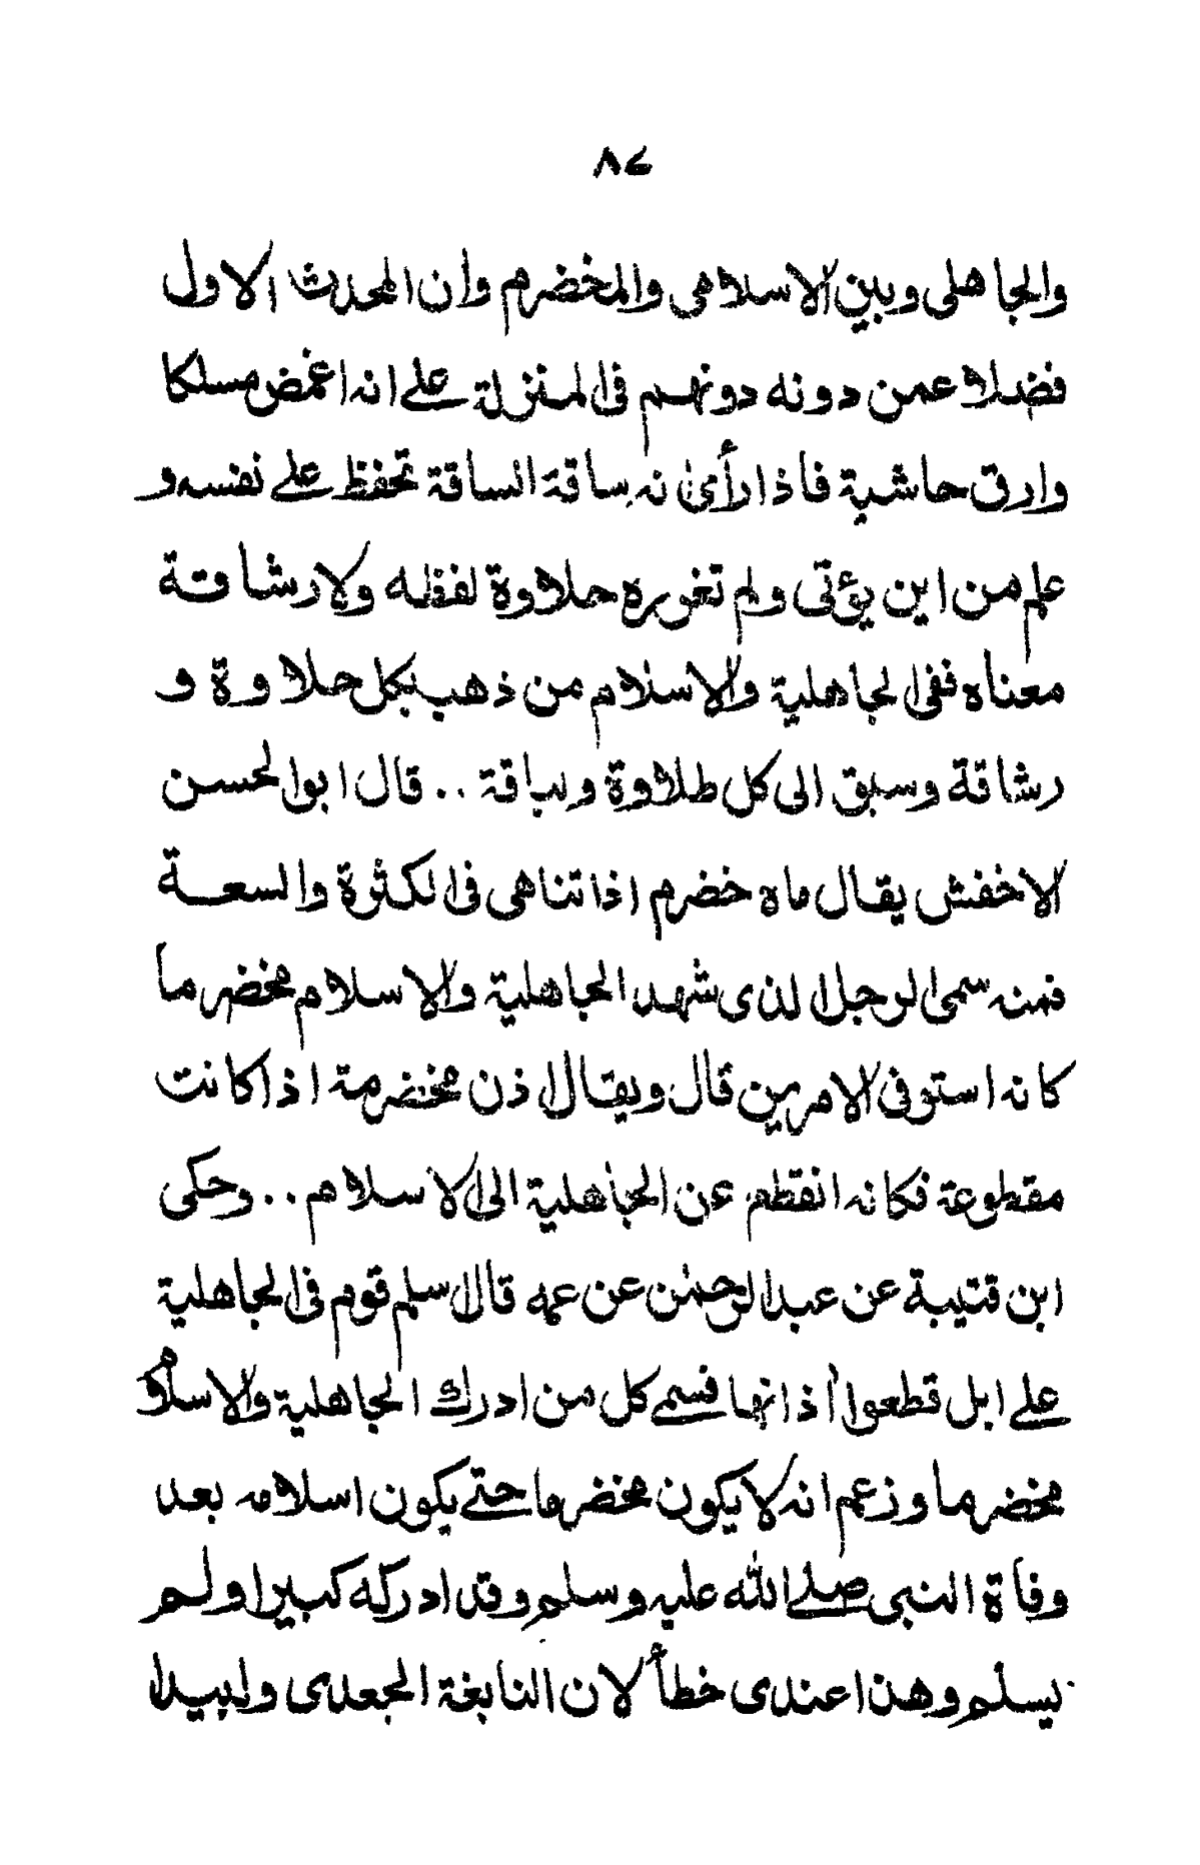 ٨٤
والجاهلى وبين الاسلامى والمخضرم وان المحدث الاول
فضلا عمن دونه دونهم فى المنزلة على انه اغمض مسلكا
وارق حاشية فاذا رأى انه ساقة الساقة تحفظ على نفسه و
علم من اين يؤتى ولم تغرره حلاوة لفظه ولا رشاقة
معناه ففى الجاهلية والاسلام من ذهب بكل حلاوة و
رشاقة وسبق الى كل طلاوة ولباقة .. قال ابو الحسن
الاخفش يقال ماء خضرم اذا تناهى فى الكثرة والسعة
فمنه سمى الرجل الذى شهد الجاهلية والاسلام مخضرما
كانه استوفى الامرين قال ويقال اذن مخضرمة اذا كانت
مقطوعة فكانه انقطع عن الجاهلية الى الاسلام .. وحكى
ابن قتيبة عن عبد الرحمٰن عن عمه قال اسلم قوم فى الجاهلية
على ابل قطعوا أذانها فسمى كل من ادرك الجاهلية والاسلام
مخضرما وزعم انه لا يكون مخضرما حتى يكون اسلامه بعد
وفاة النبى صلى الله عليه وسلم وقد ادركه كبيرا ولم
يسلم وهذا عندى خطأ لان النابغة الجعدى ولبيدا